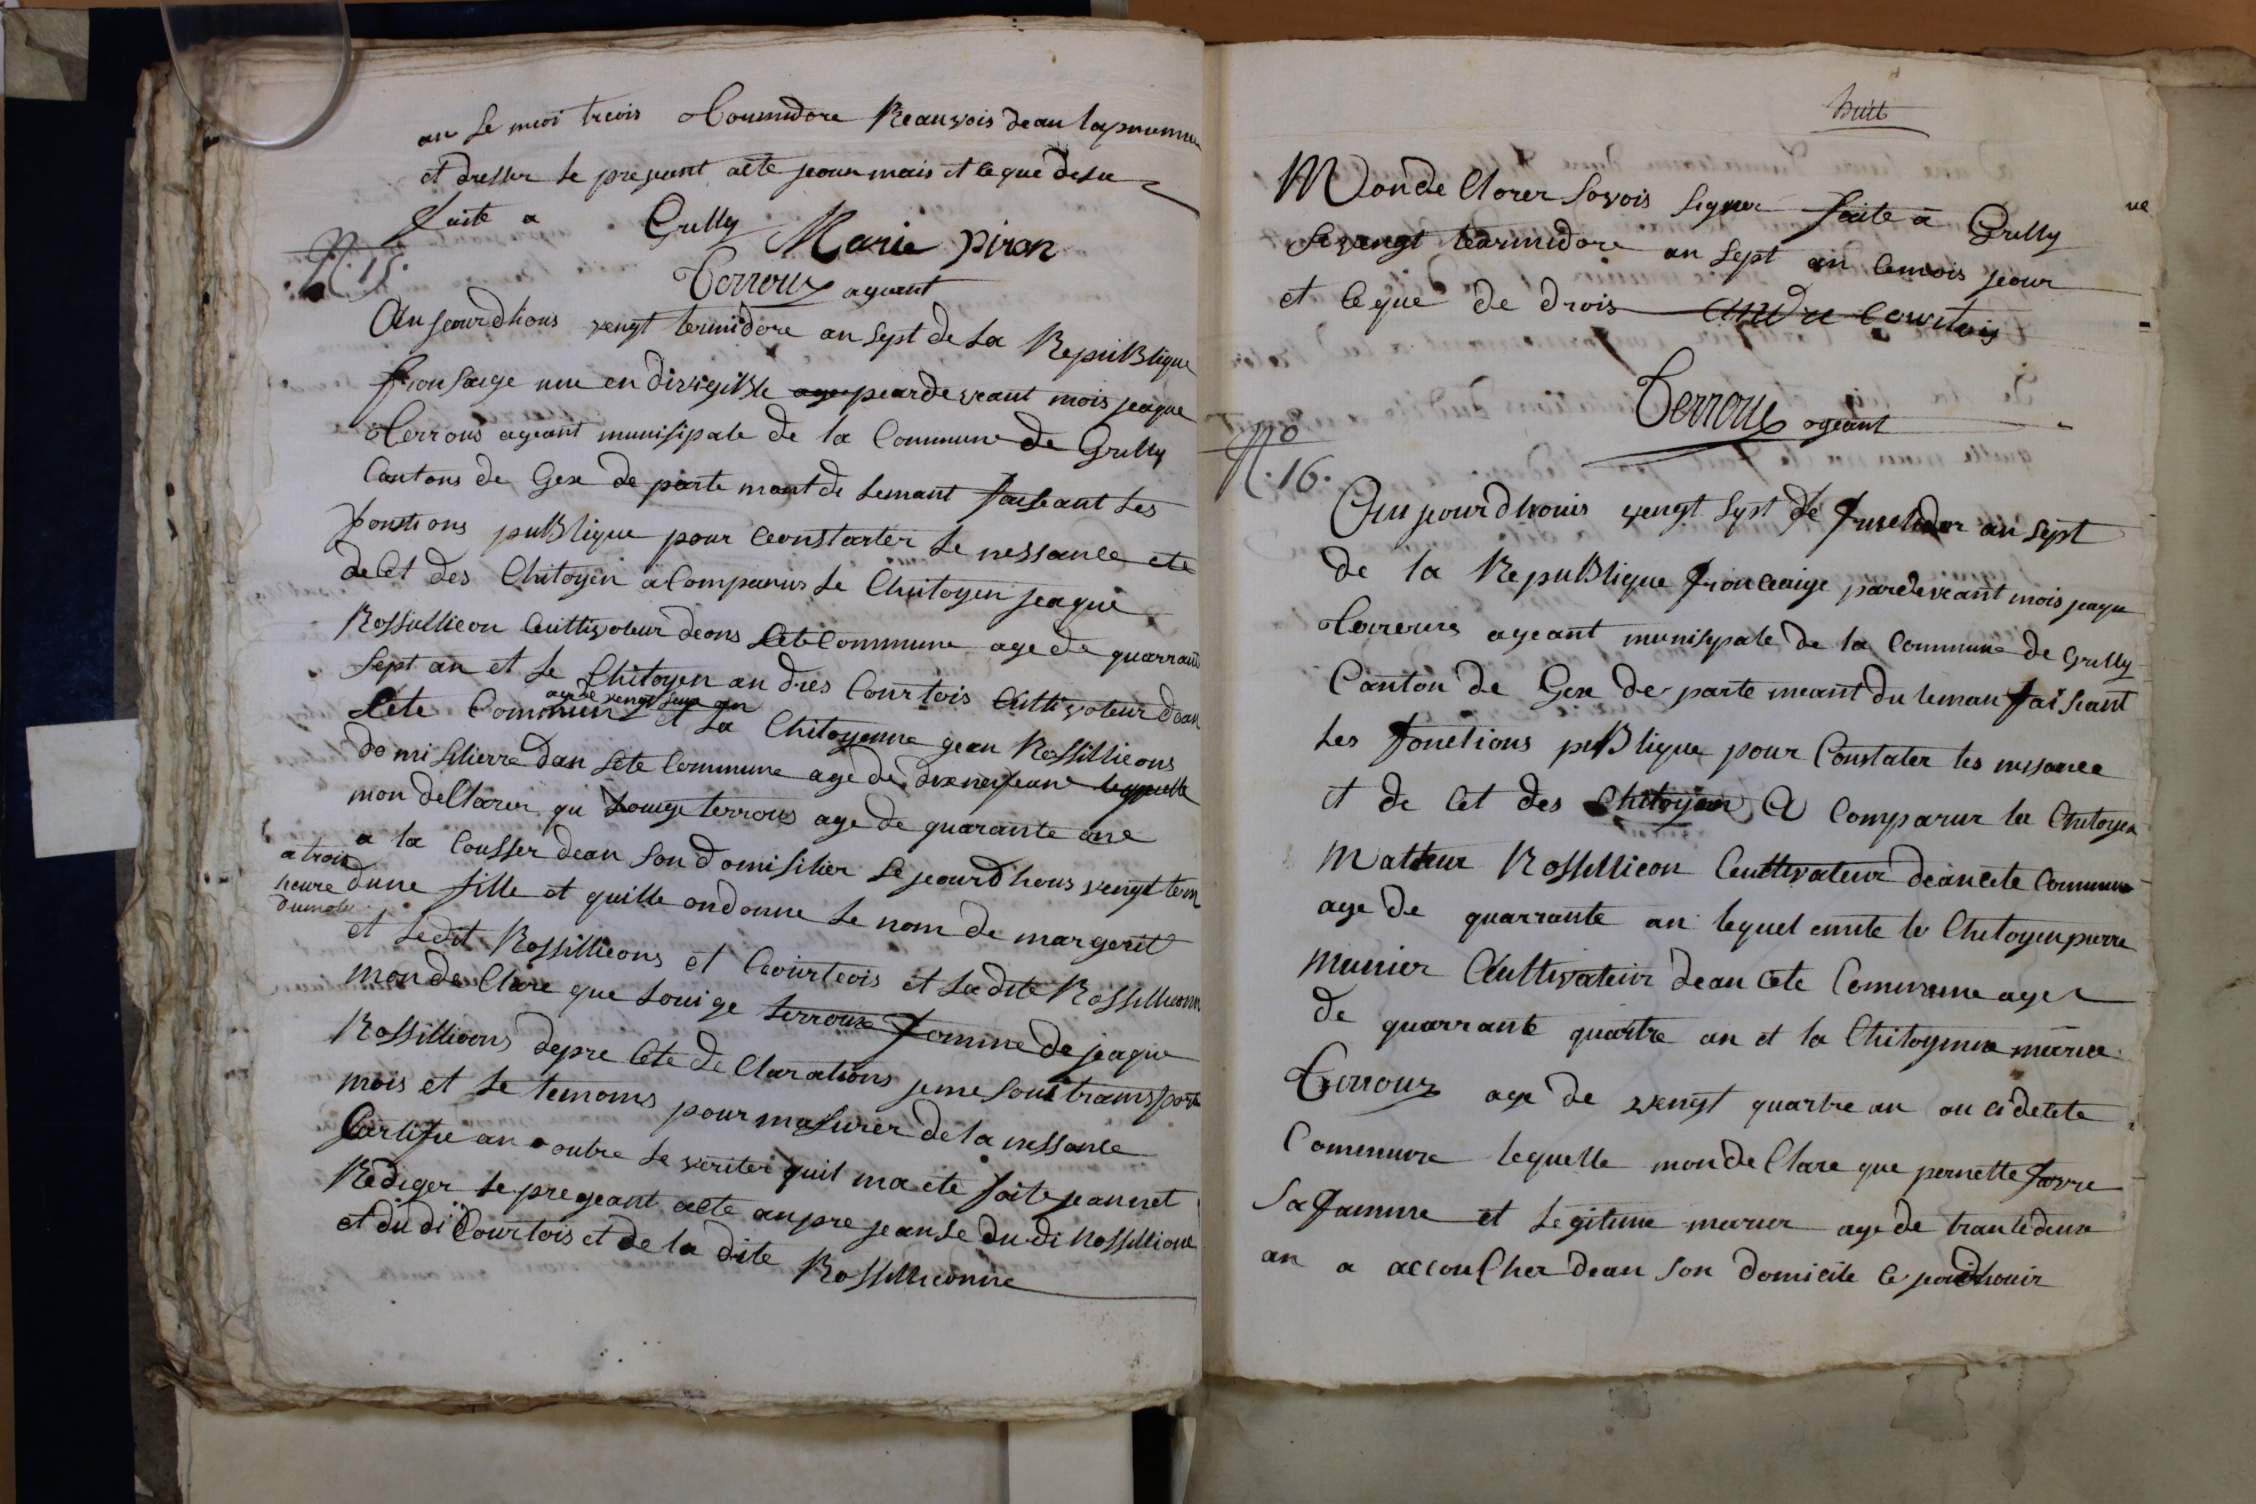 an le moi treis
et dresser le present acte jeour mais et leque desu
faite a Grilly Marie piron
Terroux ageant
N. 15.
Aujeourdhous vengt termidore an sept de la RepuBlique
fronsaige une en divigiBle peardeveant mois jeaque
terrous ageant munisipale de la Commune de Grilly
Cantons de Gex de parte mant de Lemant faiseant les
fonstions puBlique pour Ceonstarter le nessance ete
de Cet des Chitoyen a Comparus le Chitoyen jeaque
Rossillieon Ceultivoteur deans Cete Commune age de quarrante
sept an et le Chitoyen andres Courtois Cultivoteur dean
Cete Commun age de vengt an et la Chitoyenne gean Rossillieons
domisilierre dan Cete Commune age de dixneufeans lequelle
mon delClarer qu Louige terrous age de quarante ane
a la Cousser dean Son domisilier le jeourdhous vengt term
a trois heure dumatin
dune fille et quille on donne le nom de margerit
et ledit Rossillieons et Ceourteois et la dite Rossillieonne
mon de Clare que Louige terroux femme de jeaque
Rossillieons depre Cete de Clarations jeme Sous transporte
mois et le temoins pour masurer de la nessance
Certifie an outre le veriter quil ma ete faite jeannet
Rediger le pregeant acte anpre jeanse du di Rossillione
et du di Courtois et de la dite Rossillieonne
huit
Mon de Clorer Sovois Signer faite a Grilly
le vengt tearmidore an sept an le mois jeour
et leque de drois Andre Courtois
Terroux ageant
No
N. 16.
Aujourdhouis vengt sept de fructidor an sept
de la RepuBlique fronceaige pardeveant mois jeaque
terreux ageant munisipale de la Commune de Grilly
Canton de Gex de parte meant du leman faiseant
les fonctions puBlique pour Constater les nessance
et de Cet des Chitoyen A Comparur le Chitoyen
Mathieu Rossillieon Ceultivateur dean cete Commune
age de quarrante an lequel le Chitoyen pierre
Munier Cultivateur dean Cete Commune age
de quarrante quartre an et la Chitoyenne marie
Terroux age de vengt quartre an de cete
Commune lequelle mon de Clare que pernette favre
Sa famme et Legitime age de trante deux
an a accouCher dean Son domicile le jourdhouir